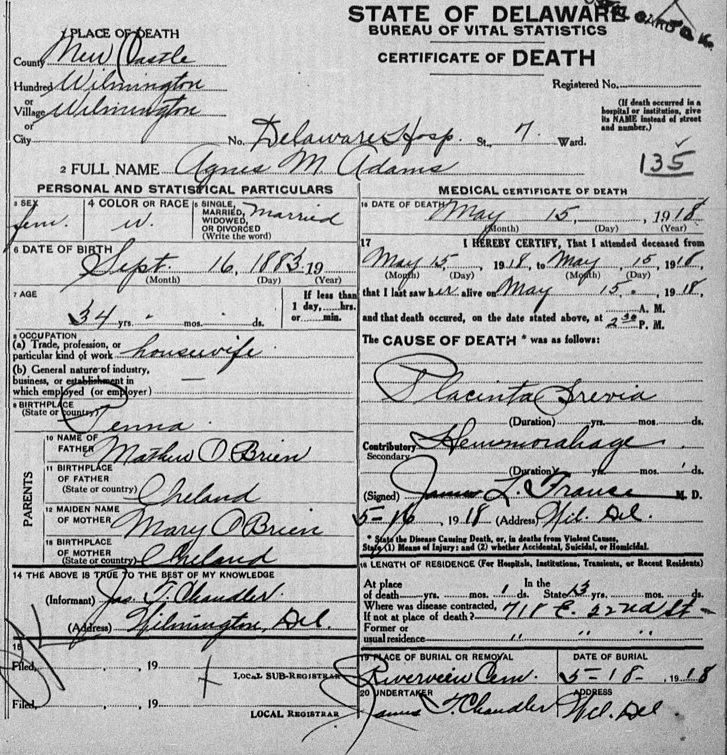 STATE OF DELAWARE
BUREAU OF VITAL STATISTICS
CERTIFICATE OF DEATH
O.K.
1 PLACE OF DEATH
County New Castle
Hundred Wilmington
or
Village Wilmington
or
City
No. Delaware Hosp. St., 7. Ward.
Registered No.
(If death occurred in a hospital or institution, give its NAME instead of street and number.)
135
2 FULL NAME Agnes M Adams
PERSONAL AND STATISTICAL PARTICULARS
3 SEX fem.
4 COLOR OR RACE W.
5 SINGLE, MARRIED, WIDOWED, OR DIVORCED (Write the word) Married
6 DATE OF BIRTH
Sept. 16, 1883 19
(Month) (Day) (Year)
7 AGE
34 yrs. mos. ds.
If less than 1 day, hrs. or min.
8 OCCUPATION
(a) Trade, profession, or particular kind of work housewife
(b) General nature of industry, business, or establishment in which employed (or employer) —
9 BIRTHPLACE
(State or country) Penna
PARENTS
10 NAME OF FATHER Mathew O'Brien
11 BIRTHPLACE OF FATHER (State or country) Ireland
12 MAIDEN NAME OF MOTHER Mary O'Brien
13 BIRTHPLACE OF MOTHER (State or country) Ireland
14 THE ABOVE IS TRUE TO THE BEST OF MY KNOWLEDGE
(Informant) Jas T. Chandler
(Address) Wilmington, Del.
15
Filed, , 19
LOCAL SUB-REGISTRAR
Filed, , 19
LOCAL REGISTRAR
MEDICAL CERTIFICATE OF DEATH
16 DATE OF DEATH May 15, 1918
(Month) (Day) (Year)
17 I HEREBY CERTIFY, That I attended deceased from
May 15, 1918, to May, 15, 1918,
(Month) (Day) (Month) (Day)
that I last saw her alive on May 15. 1918,
and that death occured, on the date stated above, at 2 30 A. M. P. M.
The CAUSE OF DEATH * was as follows:
Placinta Previa
(Duration) yrs. mos. ds.
Contributory Secondary Hemmorahage
(Duration) yrs. mos. ds.
(Signed) James L. France M. D.
5-16, 1918 (Address) Wil. Del.
* State the Disease Causing Death, or, in deaths from Violent Causes, State (1) Means of Injury: and (2) whether Accidental, Suicidal, or Homicidal.
18 LENGTH OF RESIDENCE (For Hospitals, Institutions, Transients, or Recent Residents)
At place of death yrs. mos. 1 ds. In the State 13 mos. ds.
Where was disease contracted,
If not at place of death? 718 E. 22nd St -
Former or
usual residence " " "
19 PLACE OF BURIAL OR REMOVAL
Riverview Cem.
DATE OF BURIAL
5-18-, 1918
20 UNDERTAKER
James T. Chandler
ADDRESS
Wil. Del